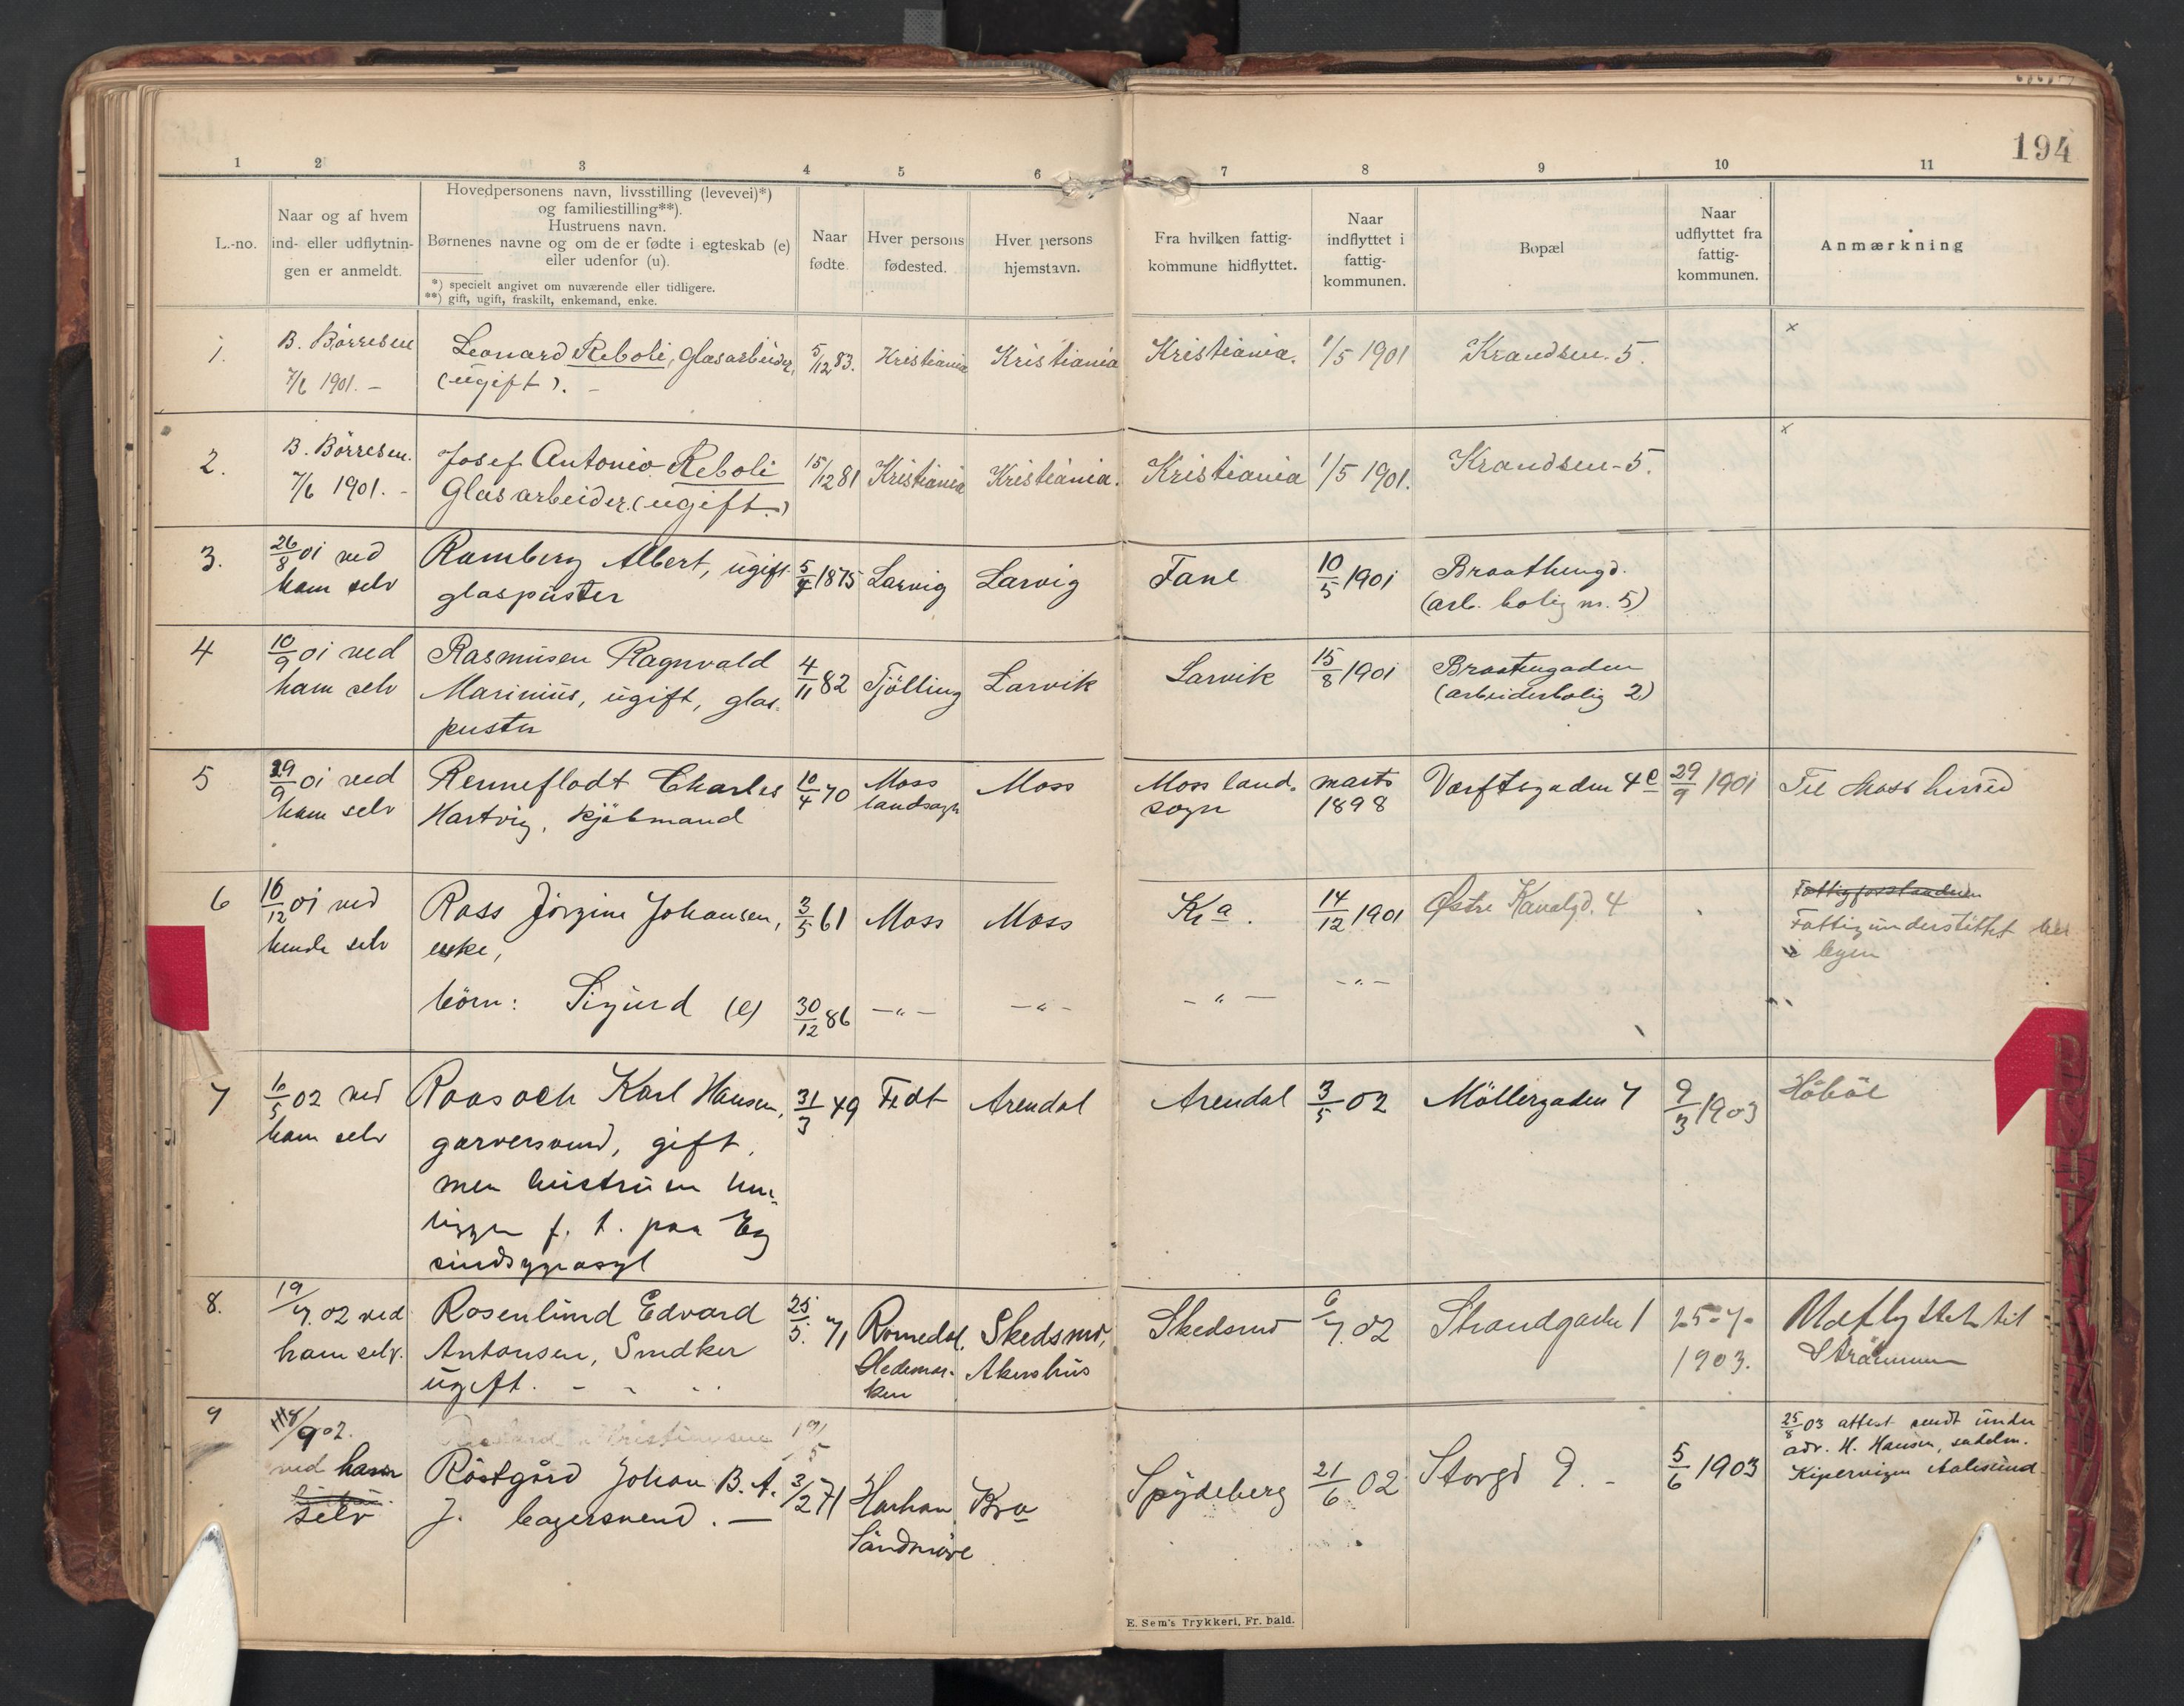 194
1 2 3 4 5 6 7 8 9 10 11
L.-no.
Naar og af hvem
ind- eller udflytnin-
gen er anmeldt.
Hovedpersonens navn, livsstilling (levevei)*)
og familiestilling**).
Hustruens navn.
Børnenes navne og om de er fødte i egteskab (e)
eller udenfor (u).
*) specielt angivet om nuværende eller tidligere.
**) gift, ugift, fraskilt, enkemand, enke.
Naar
fødte.
Hver persons
fødested.
Hver persons
hjemstavn.
Fra hvilken fattig-
kommune hidflyttet.
Naar
indflyttet i
fattig-
kommunen.
Bopæl
Naar
udflyttet fra
fattig-
kommunen.
Anmærkning
1. B. Börresen Leonard Reboli, Glasarbeider, 5/12 83. Kristiania Kristiania Kristiania. 1/5 1901 Krandsen. 5. x
7/6 1901. – (ugift). –
2. B. Börresen. Josef Antonio Reboli 15/12 81 Kristiania Kristiania. Kristiania 1/5 1901. Krandsen-5. x
7/6 1901. - Glasarbeider. (ugift.)
3. 26/8 01 ved Ramberg Albert, ugift 5/4 1875 Larvig Larvig Fane 10/5 1901 Braathengd.
ham selv glaspuster (arb. bolig nr. 5)
4 10/9 01 ved Rasmusen Ragnvald 4/11 82 Tjölling Larvik Larvik 15/8 1901 Braatengaden
ham selv Marinius, ugift, glas- (arbeiderbolig 2)
puster
5 29/9 01 ved Renneflodt Charles 10/4 70 Moss Moss Moss land. marts Værftsgaden 4 e 29/9 1901 Til Moss herred
ham selv Hartvig, kjöbmand landsogn sogn 1898
6 16/12 01 ved Rass Jörgine Johansen, 3/5 61 Moss Moss Kra. 14/12 1901 Østre Kanalgd. 4 Fattigforstanderen
hende selv enke, Fattigunderstöttet her
i byen
börn: Sigurd (e) 30/12 86 –"– –"– –"– –"–
7 6/5 02 ved Raasoch Karl Hansen, 31/3 49 Fedt Arendal Arendal 3/5 02 Möllergaden 7 9/3 1903 Höböl
ham selv garversvend, gift,
men hustruen hen-
ligger f. t. paa Eg
sindsygeasyl
8. 19/7. 02 ved Rosenlund Edvard 25/5. 71 Romedal, Skedsmo, Skedsmo 6/7. 02 Strandgaden 1 25-7- Udflyttet til
ham selv. Antonsen, Snedker Hedemar- Akershus 1903. Strömmen
ugift. - - - ken
9 18/9 02. 25/8 03 attest sendt under
ved ham Röstgård Johan B. A. 3/2 71 Harham Kra Spydeberg 21/6 02 Storgd 9. - 5/6 1903 adr. H. Hansen, sadelm.
selv J. bagersvend. — Söndmöre Kipervigen Aalesund
E. Sem's Trykkeri, Fr. hald.